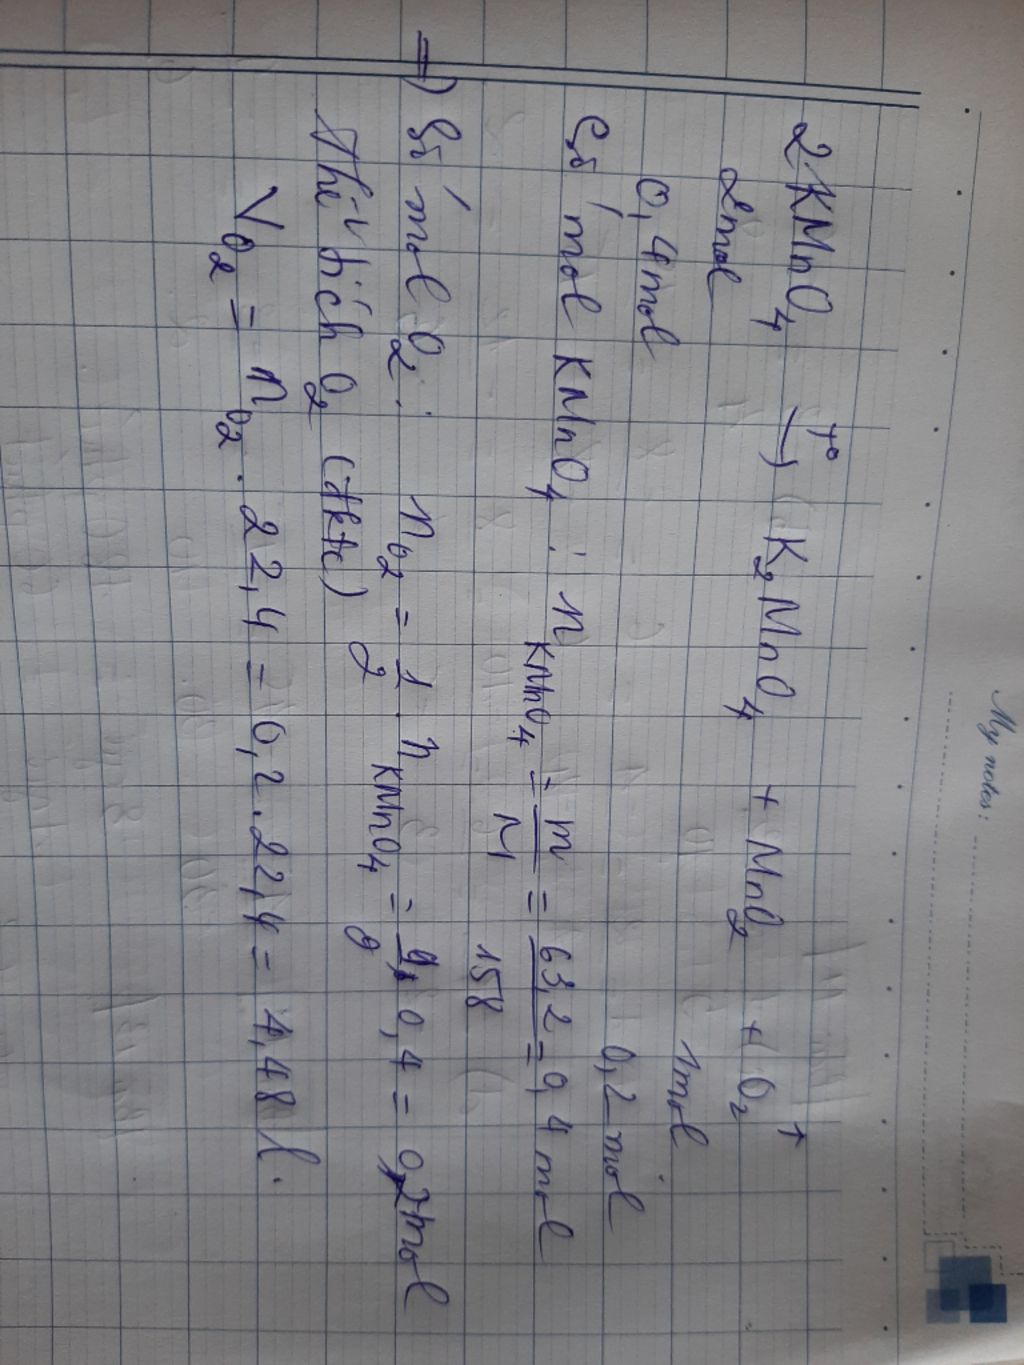 My notes:
2KMnO₄ →(t°) K₂MnO₄ + MnO₂ + O₂ ↑
2mol 1mol
0,4mol 0,2mol
Số mol KMnO₄ : n KMnO₄ = m/M = 63,2/158 = 0,4 mol
=) Số mol O₂ : n O₂ = 1/2 . n KMnO₄ = 0,4 = 0,2mol
Thể tích O₂ (đktc)
V O₂ = n O₂ . 22,4 = 0,2 . 22,4 = 4,48 l.